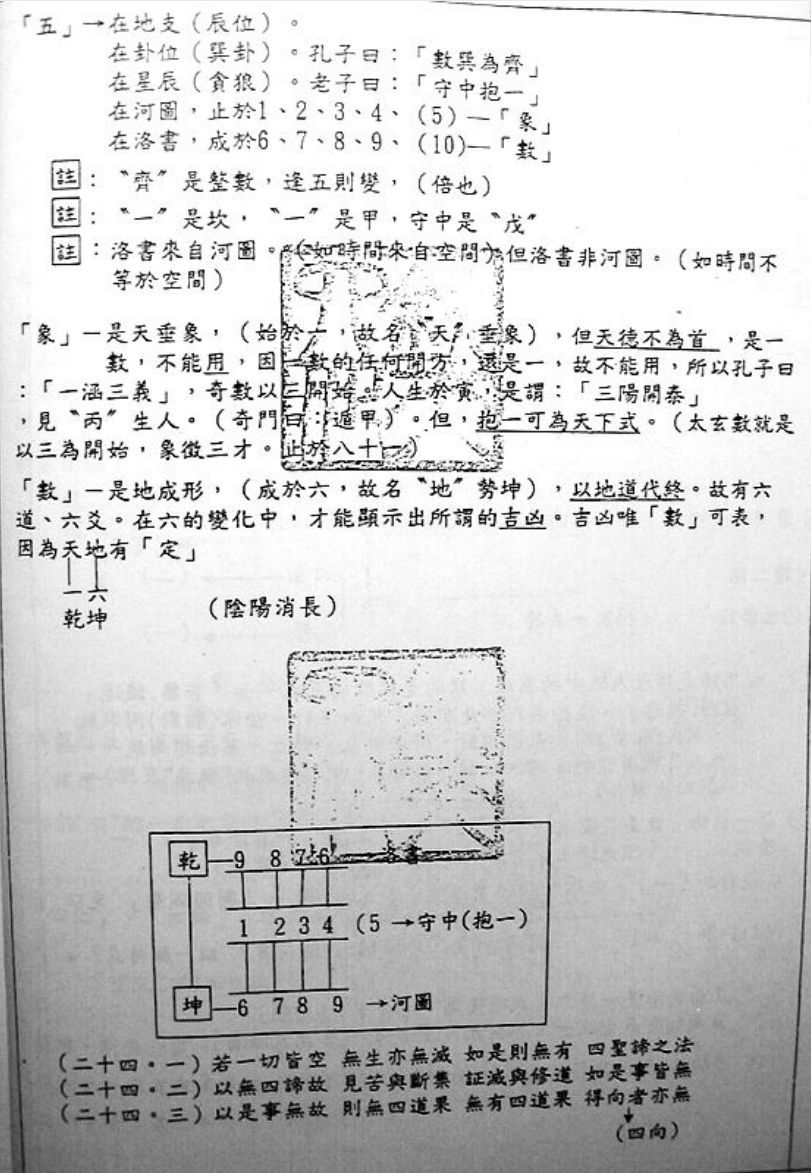 「五」→在地支（辰位）。
在卦位（巽卦）。孔子曰：「數巽為齊」
在星辰（貪狼）。老子曰：「守中抱一」
在河圖，止於1、2、3、4、(5)—「象」
在洛書，成於6、7、8、9、(10)—「數」
註：〝齊〞是整數，逢五則變，（倍也）
註：〝一〞是坎，〝一〞是甲，守中是〝戊〞
註：洛書來自河圖。（如時間來自空間）但洛書非河圖。（如時間不
等於空間）
「象」—是天垂象，（始於一，故名〝天〞垂象），但天德不為首，是一
數，不能用，因一數的任何開方，還是一，故不能用，所以孔子曰
：「一涵三義」，奇數以三開始。人生於寅，是謂：「三陽開泰」
，見〝丙〞生人。（奇門曰：遁甲）。但，抱一可為天下式。（太玄數就是
以三為開始，象徵三才。止於八十一）
「數」—是地成形，（成於六，故名〝地〞勢坤），以地道代終。故有六
道、六爻。在六的變化中，才能顯示出所謂的吉凶。吉凶唯「數」可表，
因為天地有「定」
一六
乾坤 （陰陽消長）
乾—9 8 7 6 —洛書
1 2 3 4 (5→守中(抱一)
坤—6 7 8 9 →河圖
(二十四·一) 若一切皆空 無生亦無滅 如是則無有 四聖諦之法
(二十四·二) 以無四諦故 見苦與斷集 証滅與修道 如是事皆無
(二十四·三) 以是事無故 則無四道果 無有四道果 得向者亦無
(四向)